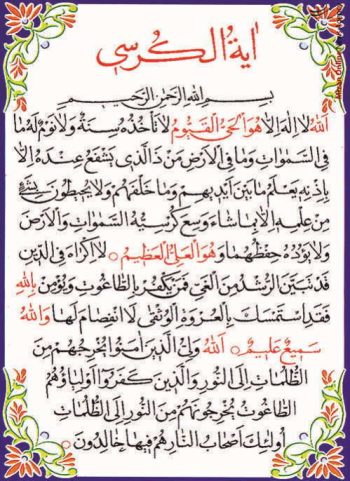 اية الكرسي
بسم الله الرحمن الرحيم
الله لا اله الا هو الحي القيوم لا تأخذه سنة ولا نوم له ما
في السموات وما في الارض من ذا الذي يشفع عنده الا
باذنه يعلم ما بين ايديهم وما خلفهم ولا يحيطون بشيء
من علمه الا بما شاء وسع كرسيه السموات والارض
ولا يؤده حفظهما وهو العلي العظيم لا اكراه في الدين
قد تبين الرشد من الغي فمن يكفر بالطاغوت ويؤمن بالله
فقد استمسك بالعروة الوثقى لا انفصام لها والله
سميع عليم الله ولي الذين امنوا يخرجهم من
الظلمات الى النور والذين كفروا اولياؤهم
الطاغوت يخرجونهم من النور الى الظلمات
اولئك اصحاب النار هم فيها خالدون